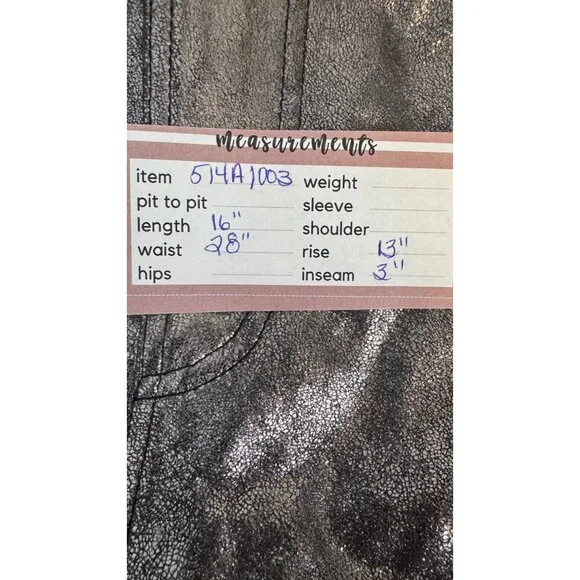 measurements
item 514A1003 weight
pit to pit sleeve
length 16" shoulder
waist 28" rise 13"
hips inseam 3"